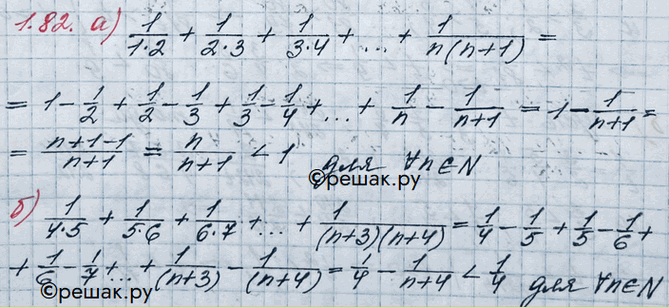 1.82. а) 1/(1·2) + 1/(2·3) + 1/(3·4) + ... + 1/(n(n+1)) =
= 1 - 1/2 + 1/2 - 1/3 + 1/3 - 1/4 + ... + 1/n - 1/(n+1) = 1 - 1/(n+1) =
= (n+1-1)/(n+1) = n/(n+1) < 1 для ∀n∈N
©решак.ру
б) 1/(4·5) + 1/(5·6) + 1/(6·7) + ... + 1/((n+3)(n+4)) = 1/4 - 1/5 + 1/5 - 1/6 +
+ 1/6 - 1/7 + ... + 1/(n+3) - 1/(n+4) = 1/4 - 1/(n+4) < 1/4 для ∀n∈N
©решак.ру